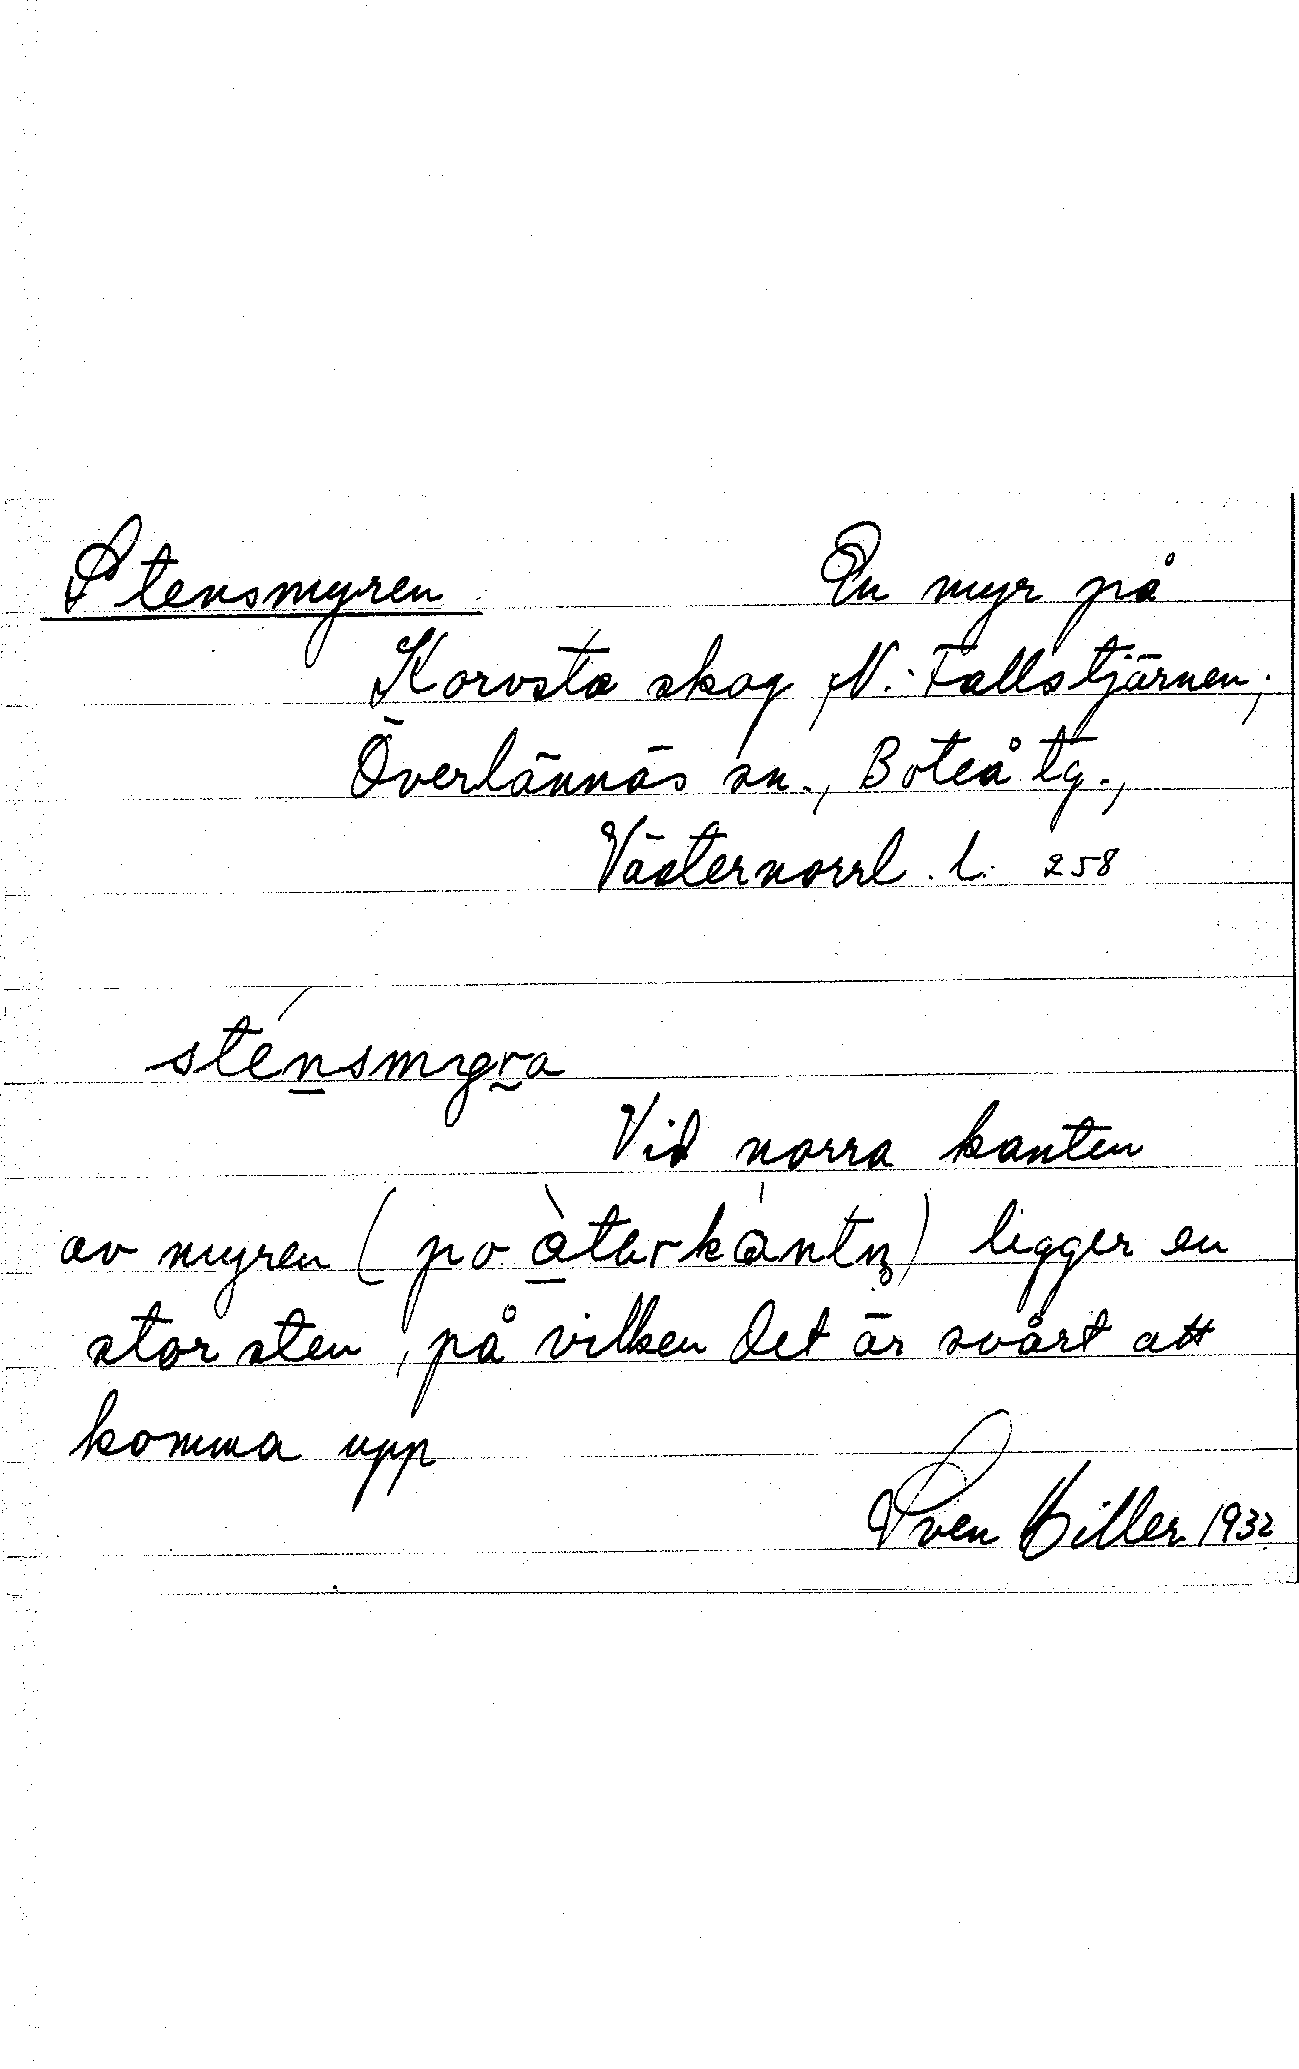 Stensmyren En myr på
Korvsta skog N. Fallstjärnen;
Överlännäs sn., Boteå tg.,
Västernorrl. l. 258
sténsmyra
Vid norra kanten
av myren (po àtərkàntn̥) ligger en
stor sten, på vilken det är svårt att
komma upp
Sven Hiller 1932